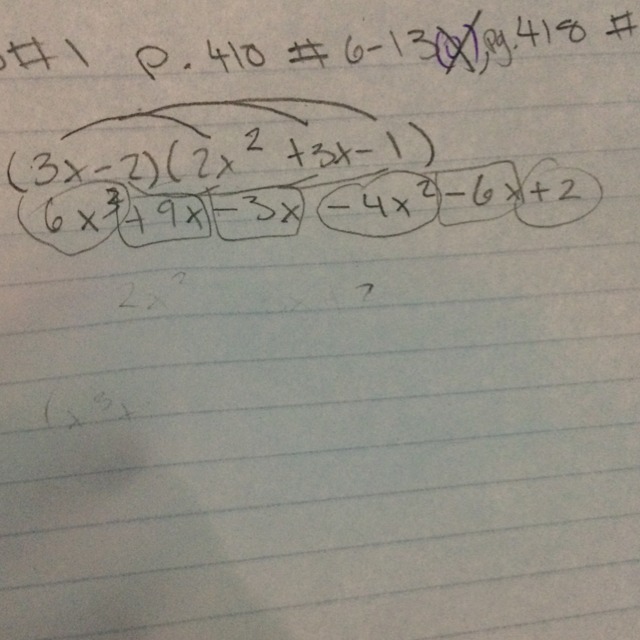 #1 p. 410 # 6-13, pg. 418 #
(3x-2)(2x² +3x-1)
6x³ +9x -3x -4x² -6x +2
2x²